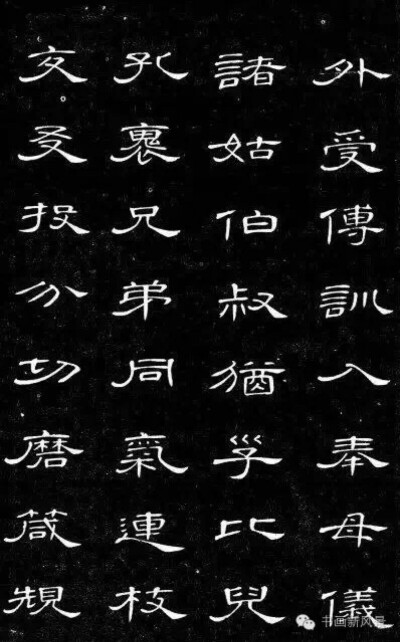 外受傅訓入奉母儀
諸姑伯叔猶子比兒
孔褱兄弟同氣連枝
交友投分切磨箴規
书画新风景